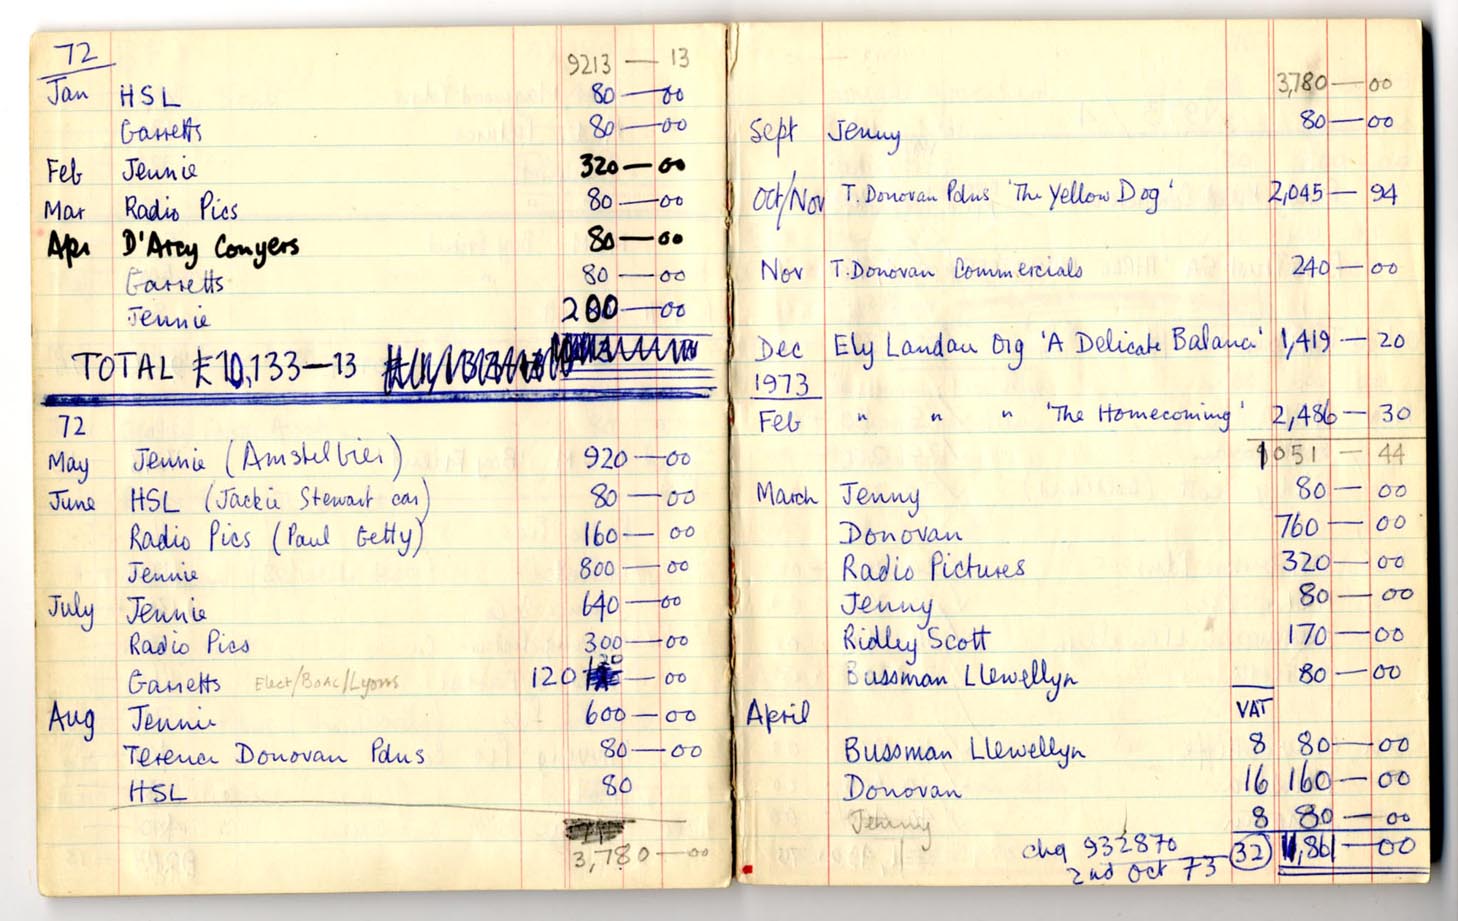 72
9213 — 13
Jan HSL 80 — 00
Garretts 80 — 00
Feb Jennie 320 — 00
Mar Radio Pics 80 — 00
Apr D'Arcy Conyers 80 — 00
Garretts 80 — 00
Jennie 200 — 00
TOTAL £10,133 — 13
72
May Jennie (Amstelbier) 920 — 00
June HSL (Jackie Stewart car) 80 — 00
Radio Pics (Paul Getty) 160 — 00
Jennie 800 — 00
July Jennie 640 — 00
Radio Pics 300 — 00
Garretts Elect/BOAC/Lyons 120 — 00
Aug Jennie 600 — 00
Terence Donovan Pdns 80 — 00
HSL 80
3,780 — 00
3,780 — 00
Sept Jenny 80 — 00
Oct/Nov T. Donovan Pdns 'The Yellow Dog' 2,045 — 94
Nov T. Donovan Commercials 240 — 00
Dec Ely Landau Org 'A Delicate Balance' 1,419 — 20
1973
Feb " " " 'The Homecoming' 2,486 — 30
051 — 44
March Jenny 80 — 00
Donovan 760 — 00
Radio Pictures 320 — 00
Jenny 80 — 00
Ridley Scott 170 — 00
Bussman Llewellyn 80 — 00
April VAT
Bussman Llewellyn 8 80 — 00
Donovan 16 160 — 00
Jenny 8 80 — 00
chq 932870 32 861 — 00
2nd Oct 73